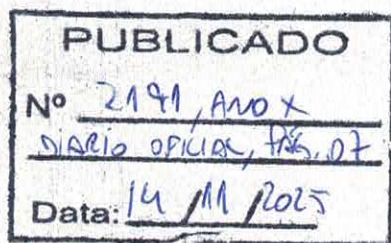 PUBLICADO
Nº 2191, ANO X
DIÁRIO OFICIAL, PÁG. 07
Data: 14 / 11 / 2025